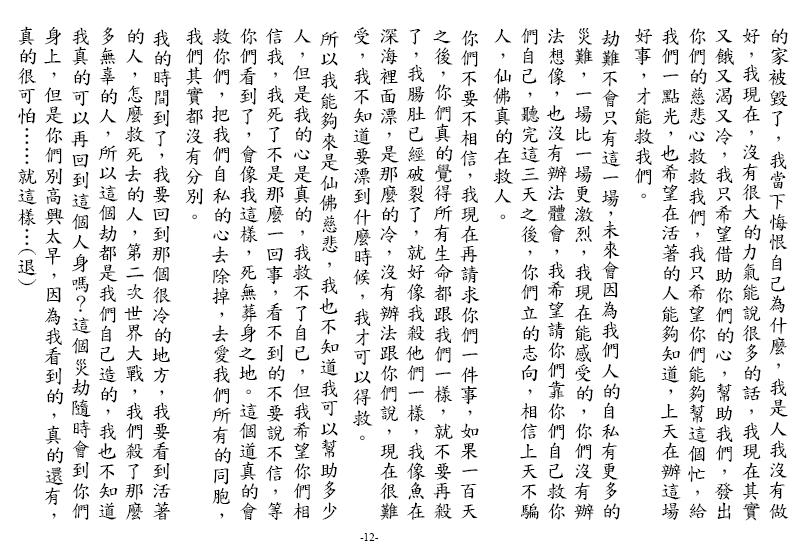 的家被毀了，我當下悔恨自己為什麼，我是人我沒有做
好，我現在，沒有很大的力氣能說很多的話，我現在其實
又餓又渴又冷，我只希望借助你們的心，幫助我們，發出
你們的慈悲心救救我們，我只希望你們能夠幫這個忙，給
我們一點光，也希望在活著的人能夠知道，上天在辦這場
好事，才能救我們。
劫難不會只有這一場，未來會因為我們人的自私有更多的
災難，一場比一場更激烈，我現在能感受的，你們沒有辦
法想像，也沒有辦法體會，我希望請你們靠你們自己救你
們自己，聽完這三天之後，你們立的志向，相信上天不騙
人，仙佛真的在救人。
你們不要不相信，我現在再請求你們一件事，如果一百天
之後，你們真的覺得所有生命都跟我們一樣，就不要再殺
了，我腸肚已經破裂了，就好像我殺他們一樣，我像魚在
深海裡面漂，是那麼的冷，沒有辦法跟你們說，現在很難
受，我不知道要漂到什麼時候，我才可以得救。
所以我能夠來是仙佛慈悲，我也不知道我可以幫助多少
人，但是我的心是真的，我救不了自己，但我希望你們相
信我，我死了不是那麼一回事，看不到的不要說不信，等
你們看到了，會像我這樣，死無葬身之地。這個道真的會
救你們，把我們自私的心去除掉，去愛我們所有的同胞，
我們其實都沒有分別。
我的時間到了，我要回到那個很冷的地方，我要看到活著
的人，怎麼救死去的人，第二次世界大戰，我們殺了那麼
多無辜的人，所以這個劫都是我們自己造的，我也不知道
我真的可以再回到這個人身嗎？這個災劫隨時會到你們
身上，但是你們別高興太早，因為我看到的，真的還有，
真的很可怕……就這樣…(退)
-12-